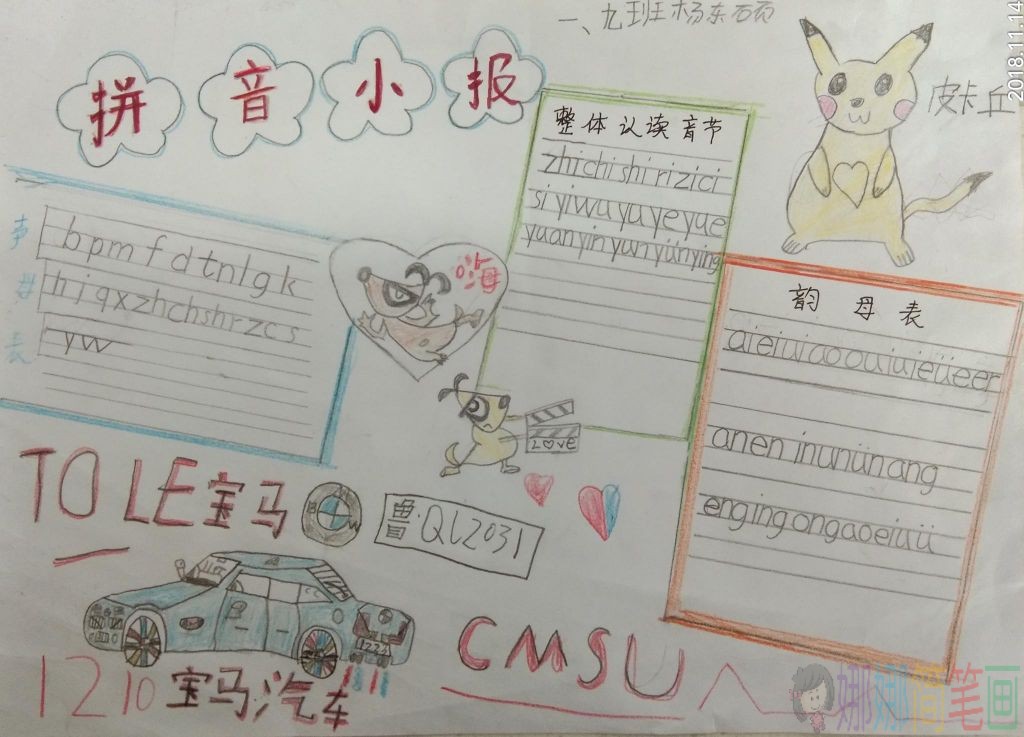 一、九班杨东硕
2018.11.14
拼音小报
皮卡丘
整体认读音节
zhi chi shi ri zi ci
si yi wu yu ye yue
yuan yin yun yün ying
声母表
b p m f d t n l g k
h j q x zh ch sh r z c s
y w
嗨
韵母表
ai ei ui ao ou iu ie üe er
an en in un ün ang
eng ing ong a o e i u ü
LOVE
TO LE 宝马
鲁:QL2031
CMSU
1210 宝马汽车
娜娜简笔画